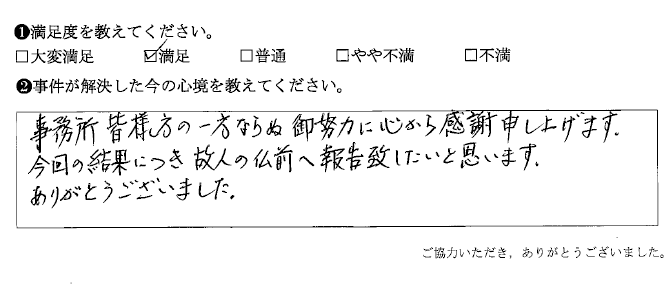 ❶満足度を教えてください。
□大変満足 ☑満足 □普通 □やや不満 □不満
❷事件が解決した今の心境を教えてください。
事務所皆様方の一方ならぬ御努力に心から感謝申し上げます.
今回の結果につき故人の仏前へ報告致したいと思います.
ありがとうございました.
ご協力いただき，ありがとうございました。